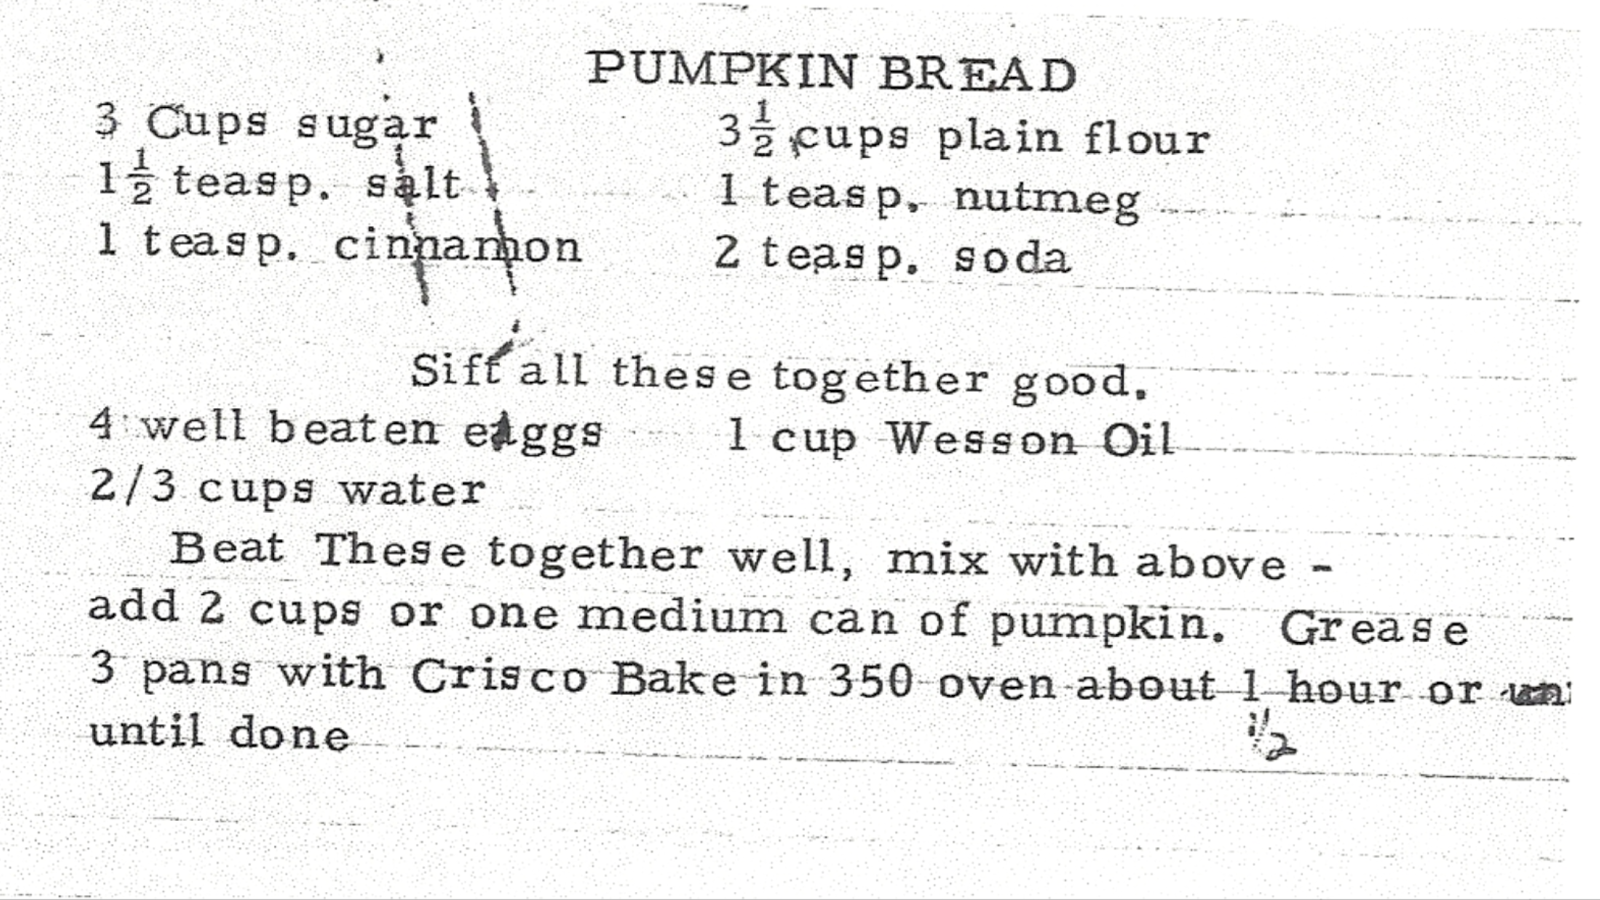 PUMPKIN BREAD
3 Cups sugar 3½ cups plain flour
1½ teasp. salt 1 teasp. nutmeg
1 teasp. cinnamon 2 teasp. soda
Sift all these together good.
4 well beaten eggs 1 cup Wesson Oil
2/3 cups water
Beat These together well, mix with above -
add 2 cups or one medium can of pumpkin. Grease
3 pans with Crisco Bake in 350 oven about 1 hour or
until done 1/2